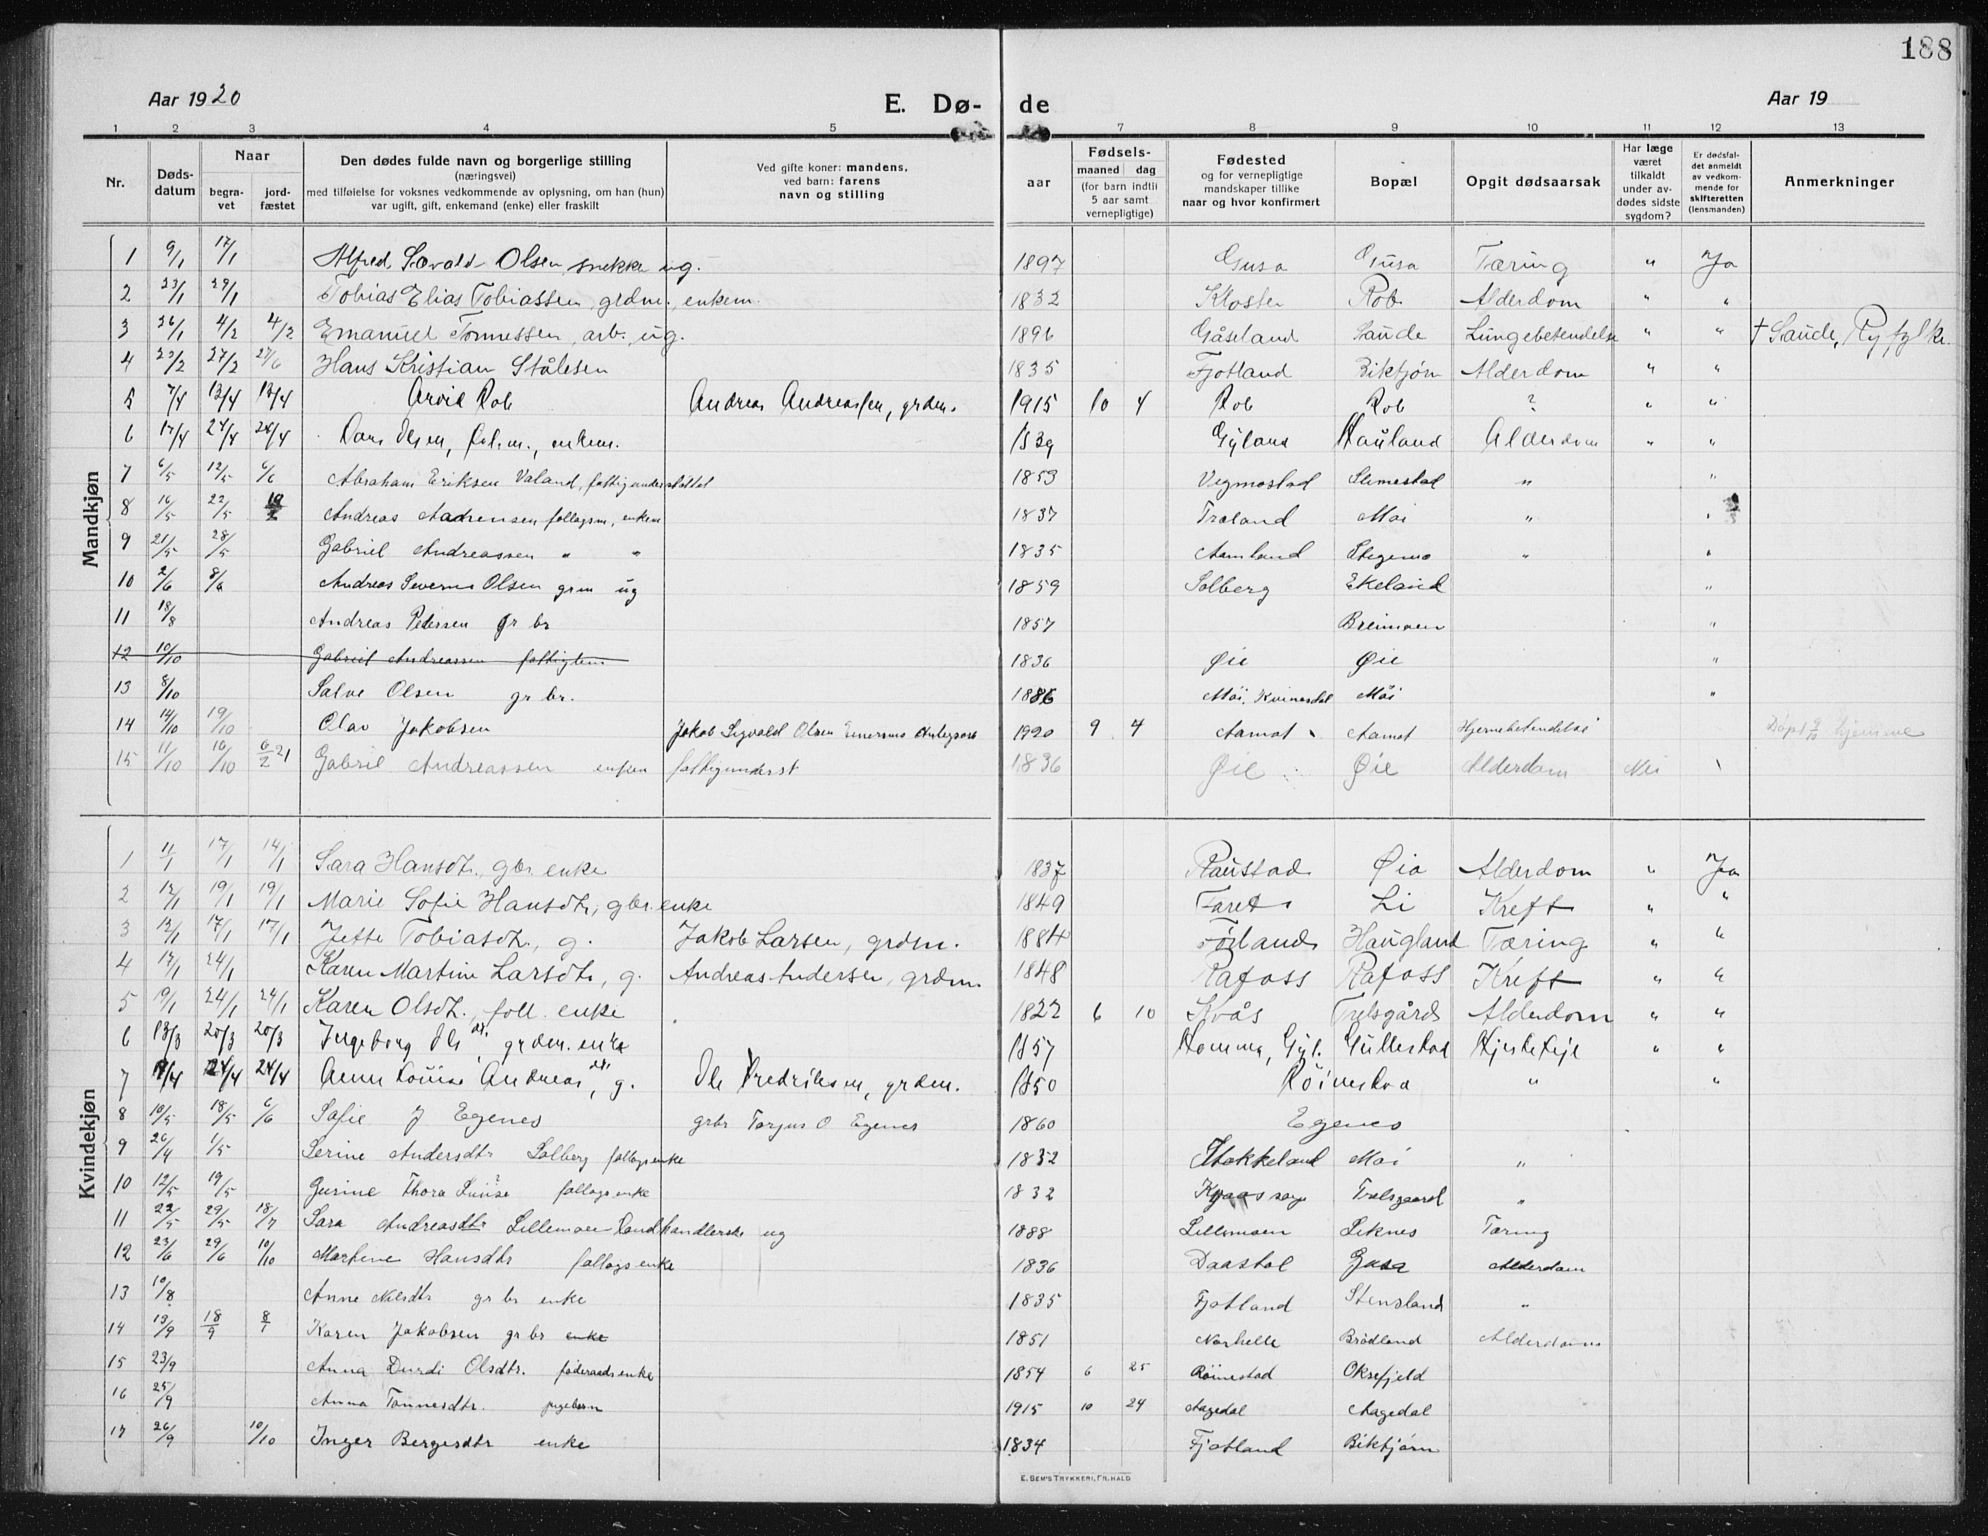 188
Aar 1920 E. Dø- de Aar 19
1 2 3 4 5 7 8 9 10 11 12 13
Nr. Døds-datum Naar begra-vet jord-fæstet Den dødes fulde navn og borgerlige stilling (næringsvei) med tilføielse for voksnes vedkommende av oplysning, om han (hun) var ugift, gift, enkemand (enke) eller fraskilt Ved gifte koner: mandens, ved barn: farens navn og stilling aar Fødsels- maaned dag (for barn indtil 5 aar samt vernepligtige) Fødested og for vernepligtige mandskaper tillike naar og hvor konfirmert Bopæl Opgit dødsaarsak Har læge været tilkaldt under av-dødes sidste sygdom? Er dødsfal-det anmeldt av vedkom-mende for skifteretten (lensmanden) Anmerkninger
Mandkjøn
1 9/1 17/1 Alfred Sævald Olsen, snekke ug. 1897 Gusa Gusa Tæring " Ja
2 23/1 29/1 Tobias Elias Tobiassen, grdm., enkem. 1832 Kloster Rob Alderdom " "
3 26/1 4/2 4/2 Emanuel Tønnessen, arb., ug. 1896 Gåseland Saude Lungebetendelse " " † Saude, Ryfylke.
4 27/2 27/6 Hans Kristian Stålesen 1835 Fjotland Biktjøn Alderdom " "
5 7/4 13/4 13/4 Arvid Rob Andreas Andreassen, grdm. 1915 10 4 Rob Rob ? " "
6 17/4 24/4 24/4 Olsen, enkem. 1839 Gyland Hauland Alderdom " "
7 6/5 12/5 6/6 Abraham Eriksen Valand, fattigunderstøttet 1853 Vegmostad Slimestad " "
8 16/5 22/5 Andreas Aadnensen follogsm, enkem 1837 Træland Moi " "
9 21/5 28/5 Gabriel Andreassen " " 1835 Aamland Stegemo " "
10 2/6 8/6 Andreas Severin Olsen grm ug 1859 Solberg Ekeland "
11 18/8 Andreas Petersen gr br 1857 Breimoen "
12 10/10 Gabriel Andreassen fattiglem 1836 Øie Øie "
13 8/10 Salve Olsen gr br. 1886 Moi, Kvinesdal Moi "
14 14/10 19/10 Olav Jakobsen Jakob Sigvald Olsen 1920 9 4 Aamot Aamot Hjernebetendelse Døpt hjemme
15 11/10 16/10 6/2 21 Gabriel Andreassen enkem fattigunderst 1836 Øie Øie Alderdom Nei
Kvindekjøn
1 11/1 17/1 14/1 Sara Hansdtr., gbr. enke 1837 Raustad Øia Alderdom " Ja
2 12/1 19/1 19/1 Marie Sofie Hansdtr., gbr. enke 1849 Faret Li Kreft " "
3 12/1 17/1 17/1 Jette Tobiasdtr., g. Jakob Larsen, grdm. 1884 Førland Haugland Tæring " "
4 17/1 24/1 Karen Martine Larsdtr., g. Andreas Andersen, grdm. 1848 Rafoss Rafoss Kreft " "
5 19/1 24/1 24/1 Karen Olsdtr., foll. enke 1827 6 10 Kvås Trelsgård Alderdom " "
6 13/3 20/3 20/3 Ingeborg Olsdtr., grdm. enke 1857 Homme, Gyl. Gullestad Hjertefeil " "
7 24/4 24/4 Anne Louise Andreasdtr., g. Ole Fredriksen, grdm. 1850 Röinestad " "
8 10/5 18/5 6/6 Sofie J Egenes grbr Torjus O Egenes 1860 Egenes
9 26/4 1/5 Serine Andersdtr Solberg follogsenke 1832 Stokkeland Moi "
10 12/5 19/5 Gurine Thora Luise follogs enke 1832 Trelsgaard "
11 22/5 29/5 18/7 Sara Andreasdtr Lillemoen Landhandlerske ug 1888 Lillemoen Liknes Tæring
12 23/6 29/6 10/10 Martine Hansdtr follogs enke 1836 Daastøl Gusa Alderdom
13 10/8 Anne Nilsdtr gr br enke 1835 Fjotland Stensland "
14 13/9 18/9 8/1 Karen Jakobsen gr br enke 1851 Narhelle Brådland Alderdoms
15 23/9 Anna Durdi Olsdtr. føderaads enke 1854 6 25 Röinestad Oksefjeld
16 25/9 Anna Tønnesdtr. pigebarn 1915 10 24 Aagedal Aagedal
17 26/9 10/10 Inger Bergesdtr enke 1834 Fjotland Biktjørn
E. SEM'S TRYKKERI, FR.HALD